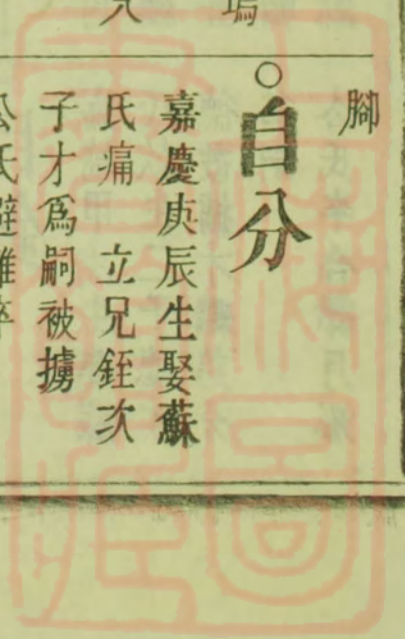 塢
脚
○自分
嘉慶庚辰生娶蘇
氏痛 立兄銍次
子才為嗣被擄
公氏避難卒